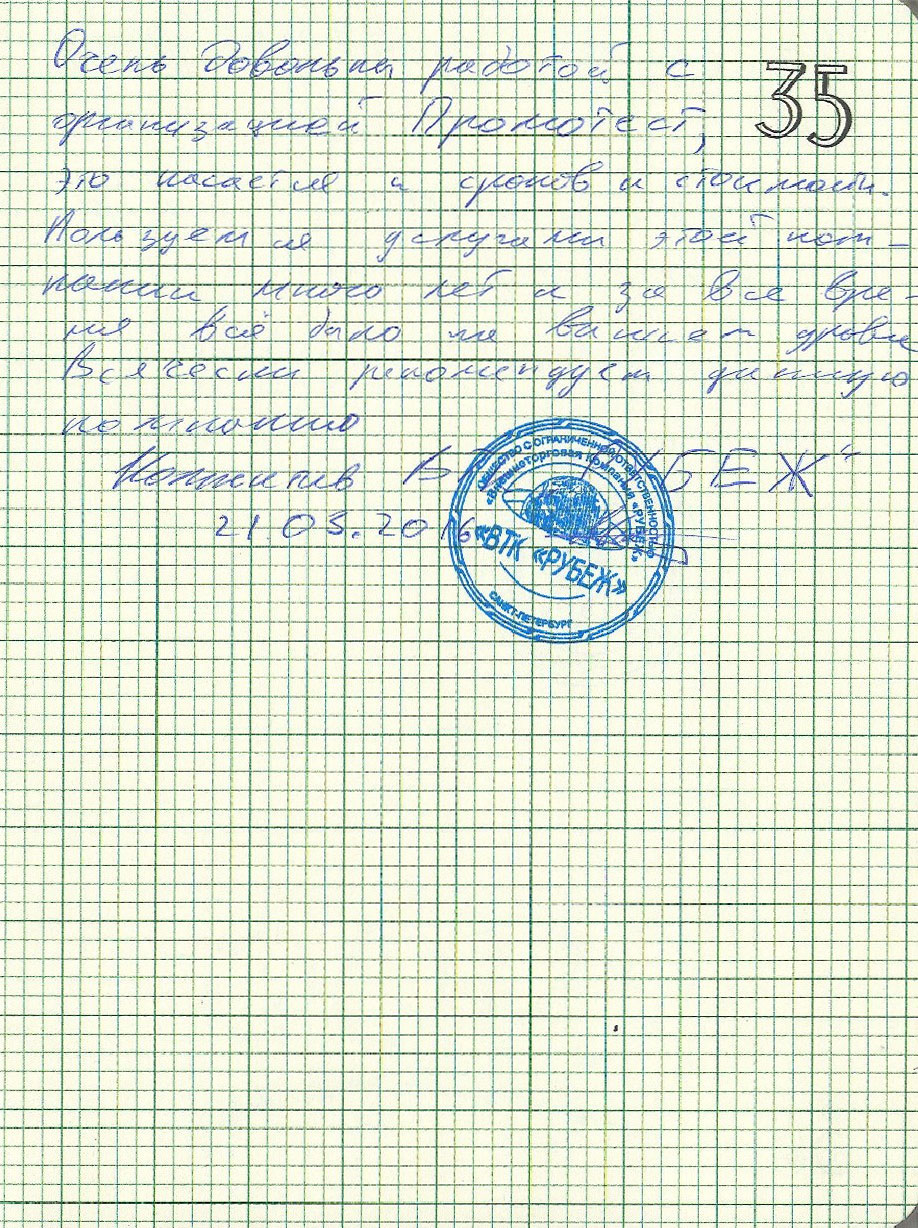 Очень довольны работой с
35
организацией Промотест,
это касается и сроков и стоимости.
Пользуемся услугами этой ком-
пании много лет и за все вре-
мя всё было на высшем уровне
Всячески рекомендуем данную
компанию
Коллектив
БЕЖ"
21 03.2016
ОБЩЕСТВО С ОГРАНИЧЕННОЙ ОТВЕТСТВЕННОСТЬЮ
«Внешнеторговая Компания «РУБЕЖ»
«ВТК «РУБЕЖ»
САНКТ-ПЕТЕРБУРГ